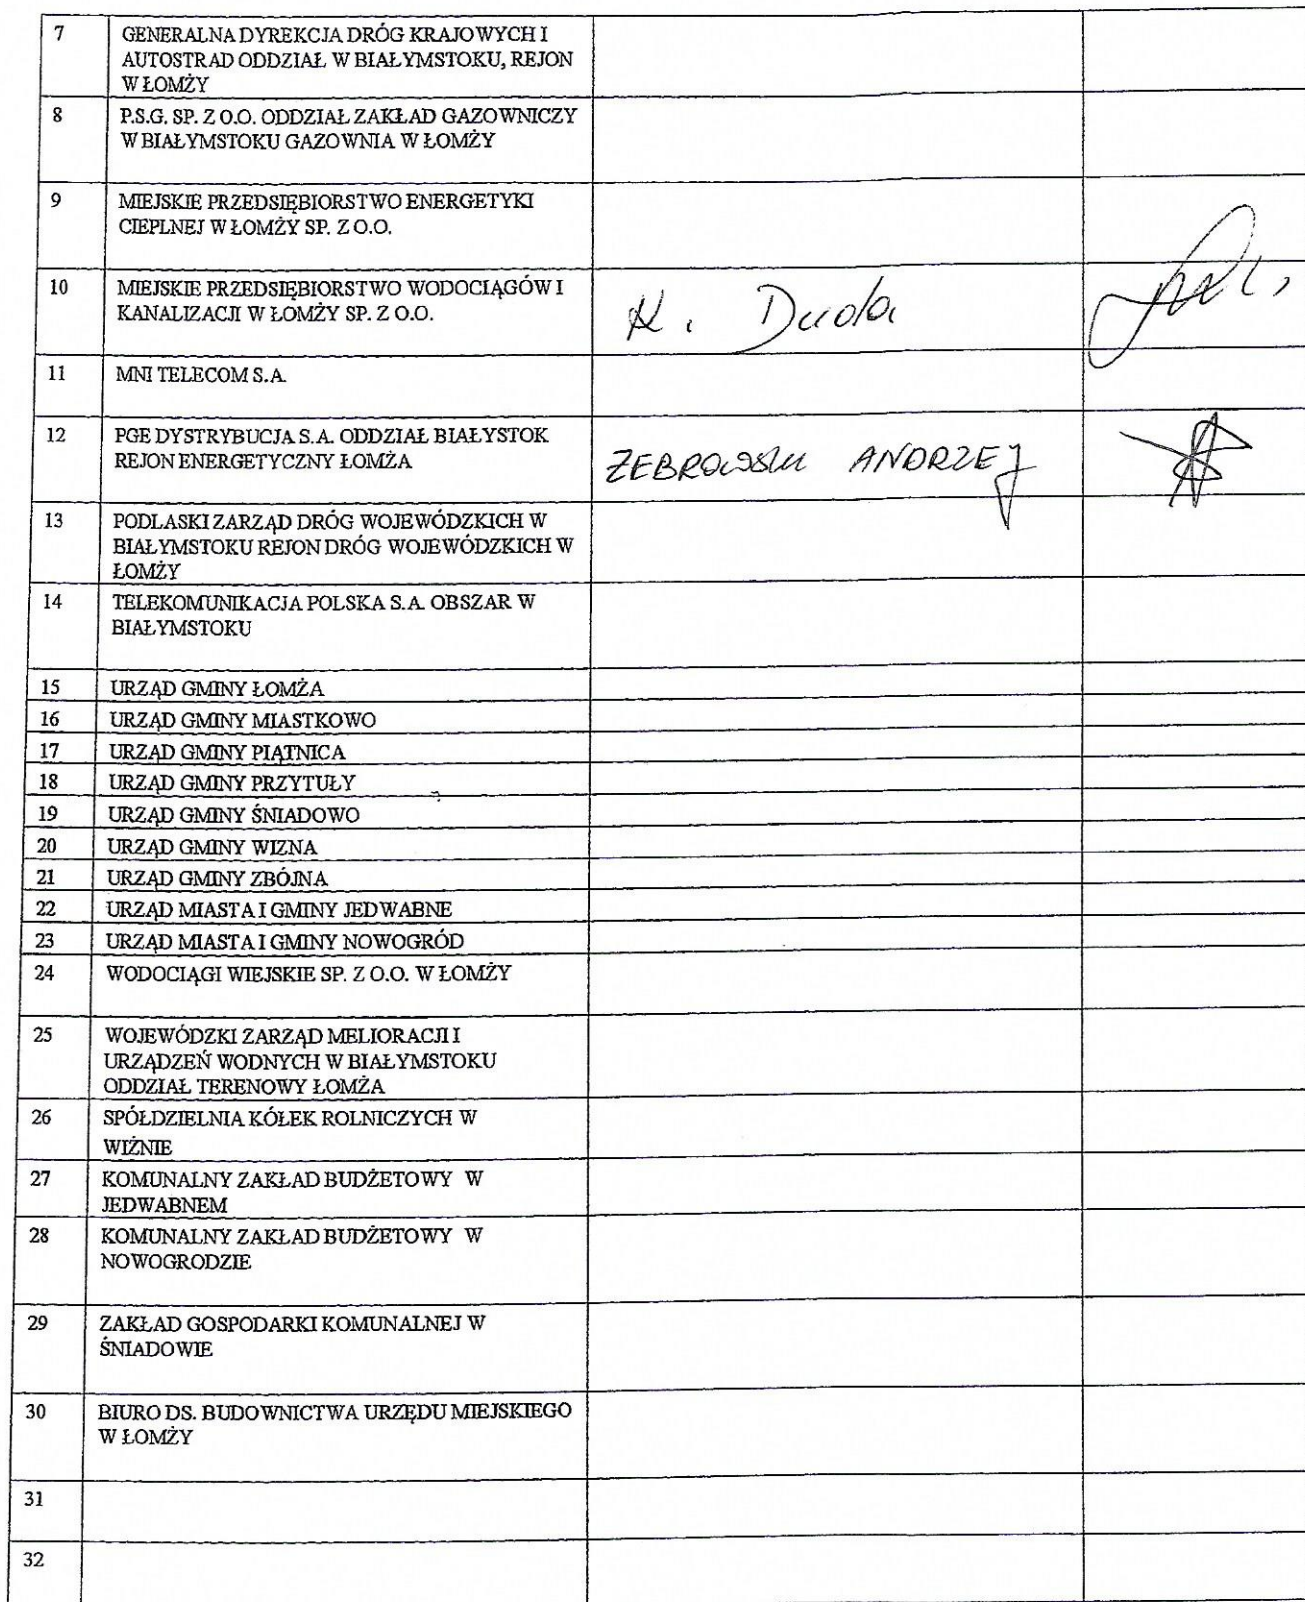 7 GENERALNA DYREKCJA DRÓG KRAJOWYCH I
AUTOSTRAD ODDZIAŁ W BIAŁYMSTOKU, REJON
W ŁOMŻY
8 P.S.G. SP. Z O.O. ODDZIAŁ ZAKŁAD GAZOWNICZY
W BIAŁYMSTOKU GAZOWNIA W ŁOMŻY
9 MIEJSKIE PRZEDSIĘBIORSTWO ENERGETYKI
CIEPLNEJ W ŁOMŻY SP. Z O.O.
10 MIEJSKIE PRZEDSIĘBIORSTWO WODOCIĄGÓW I
KANALIZACJI W ŁOMŻY SP. Z O.O.
K. Duda
11 MNI TELECOM S.A.
12 PGE DYSTRYBUCJA S.A. ODDZIAŁ BIAŁYSTOK
REJON ENERGETYCZNY ŁOMŻA
ŻEBROWSKI ANDRZEJ
13 PODLASKI ZARZĄD DRÓG WOJEWÓDZKICH W
BIAŁYMSTOKU REJON DRÓG WOJEWÓDZKICH W
ŁOMŻY
14 TELEKOMUNIKACJA POLSKA S.A. OBSZAR W
BIAŁYMSTOKU
15 URZĄD GMINY ŁOMŻA
16 URZĄD GMINY MIASTKOWO
17 URZĄD GMINY PIĄTNICA
18 URZĄD GMINY PRZYTUŁY
19 URZĄD GMINY ŚNIADOWO
20 URZĄD GMINY WIZNA
21 URZĄD GMINY ZBÓJNA
22 URZĄD MIASTA I GMINY JEDWABNE
23 URZĄD MIASTA I GMINY NOWOGRÓD
24 WODOCIĄGI WIEJSKIE SP. Z O.O. W ŁOMŻY
25 WOJEWÓDZKI ZARZĄD MELIORACJI I
URZĄDZEŃ WODNYCH W BIAŁYMSTOKU
ODDZIAŁ TERENOWY ŁOMŻA
26 SPÓŁDZIELNIA KÓŁEK ROLNICZYCH W
WIŹNIE
27 KOMUNALNY ZAKŁAD BUDŻETOWY W
JEDWABNEM
28 KOMUNALNY ZAKŁAD BUDŻETOWY W
NOWOGRODZIE
29 ZAKŁAD GOSPODARKI KOMUNALNEJ W
ŚNIADOWIE
30 BIURO DS. BUDOWNICTWA URZĘDU MIEJSKIEGO
W ŁOMŻY
31
32